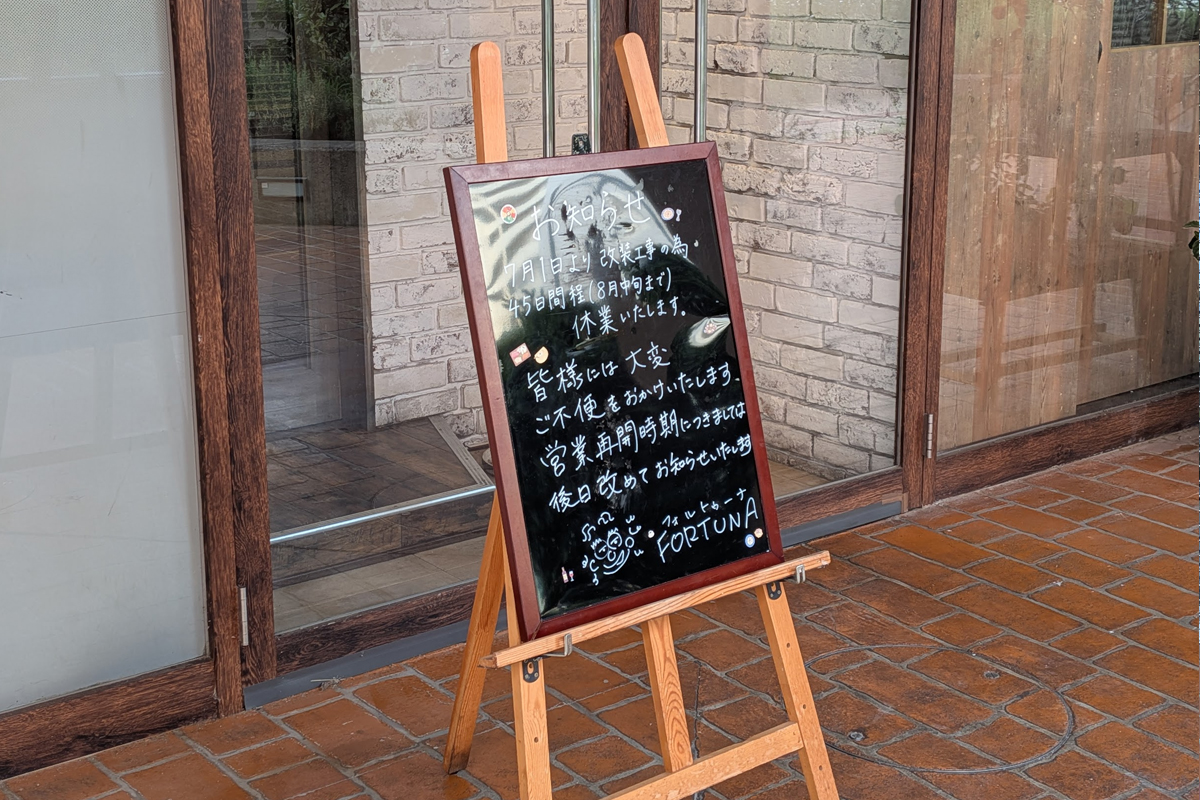 お知らせ
7月1日より改装工事の為
45日間程(8月中旬まで)
休業いたします。
皆様には大変
ご不便をおかけいたします、
営業再開時期につきましては
後日改めてお知らせいたします
フォルトゥーナ
FORTUNA